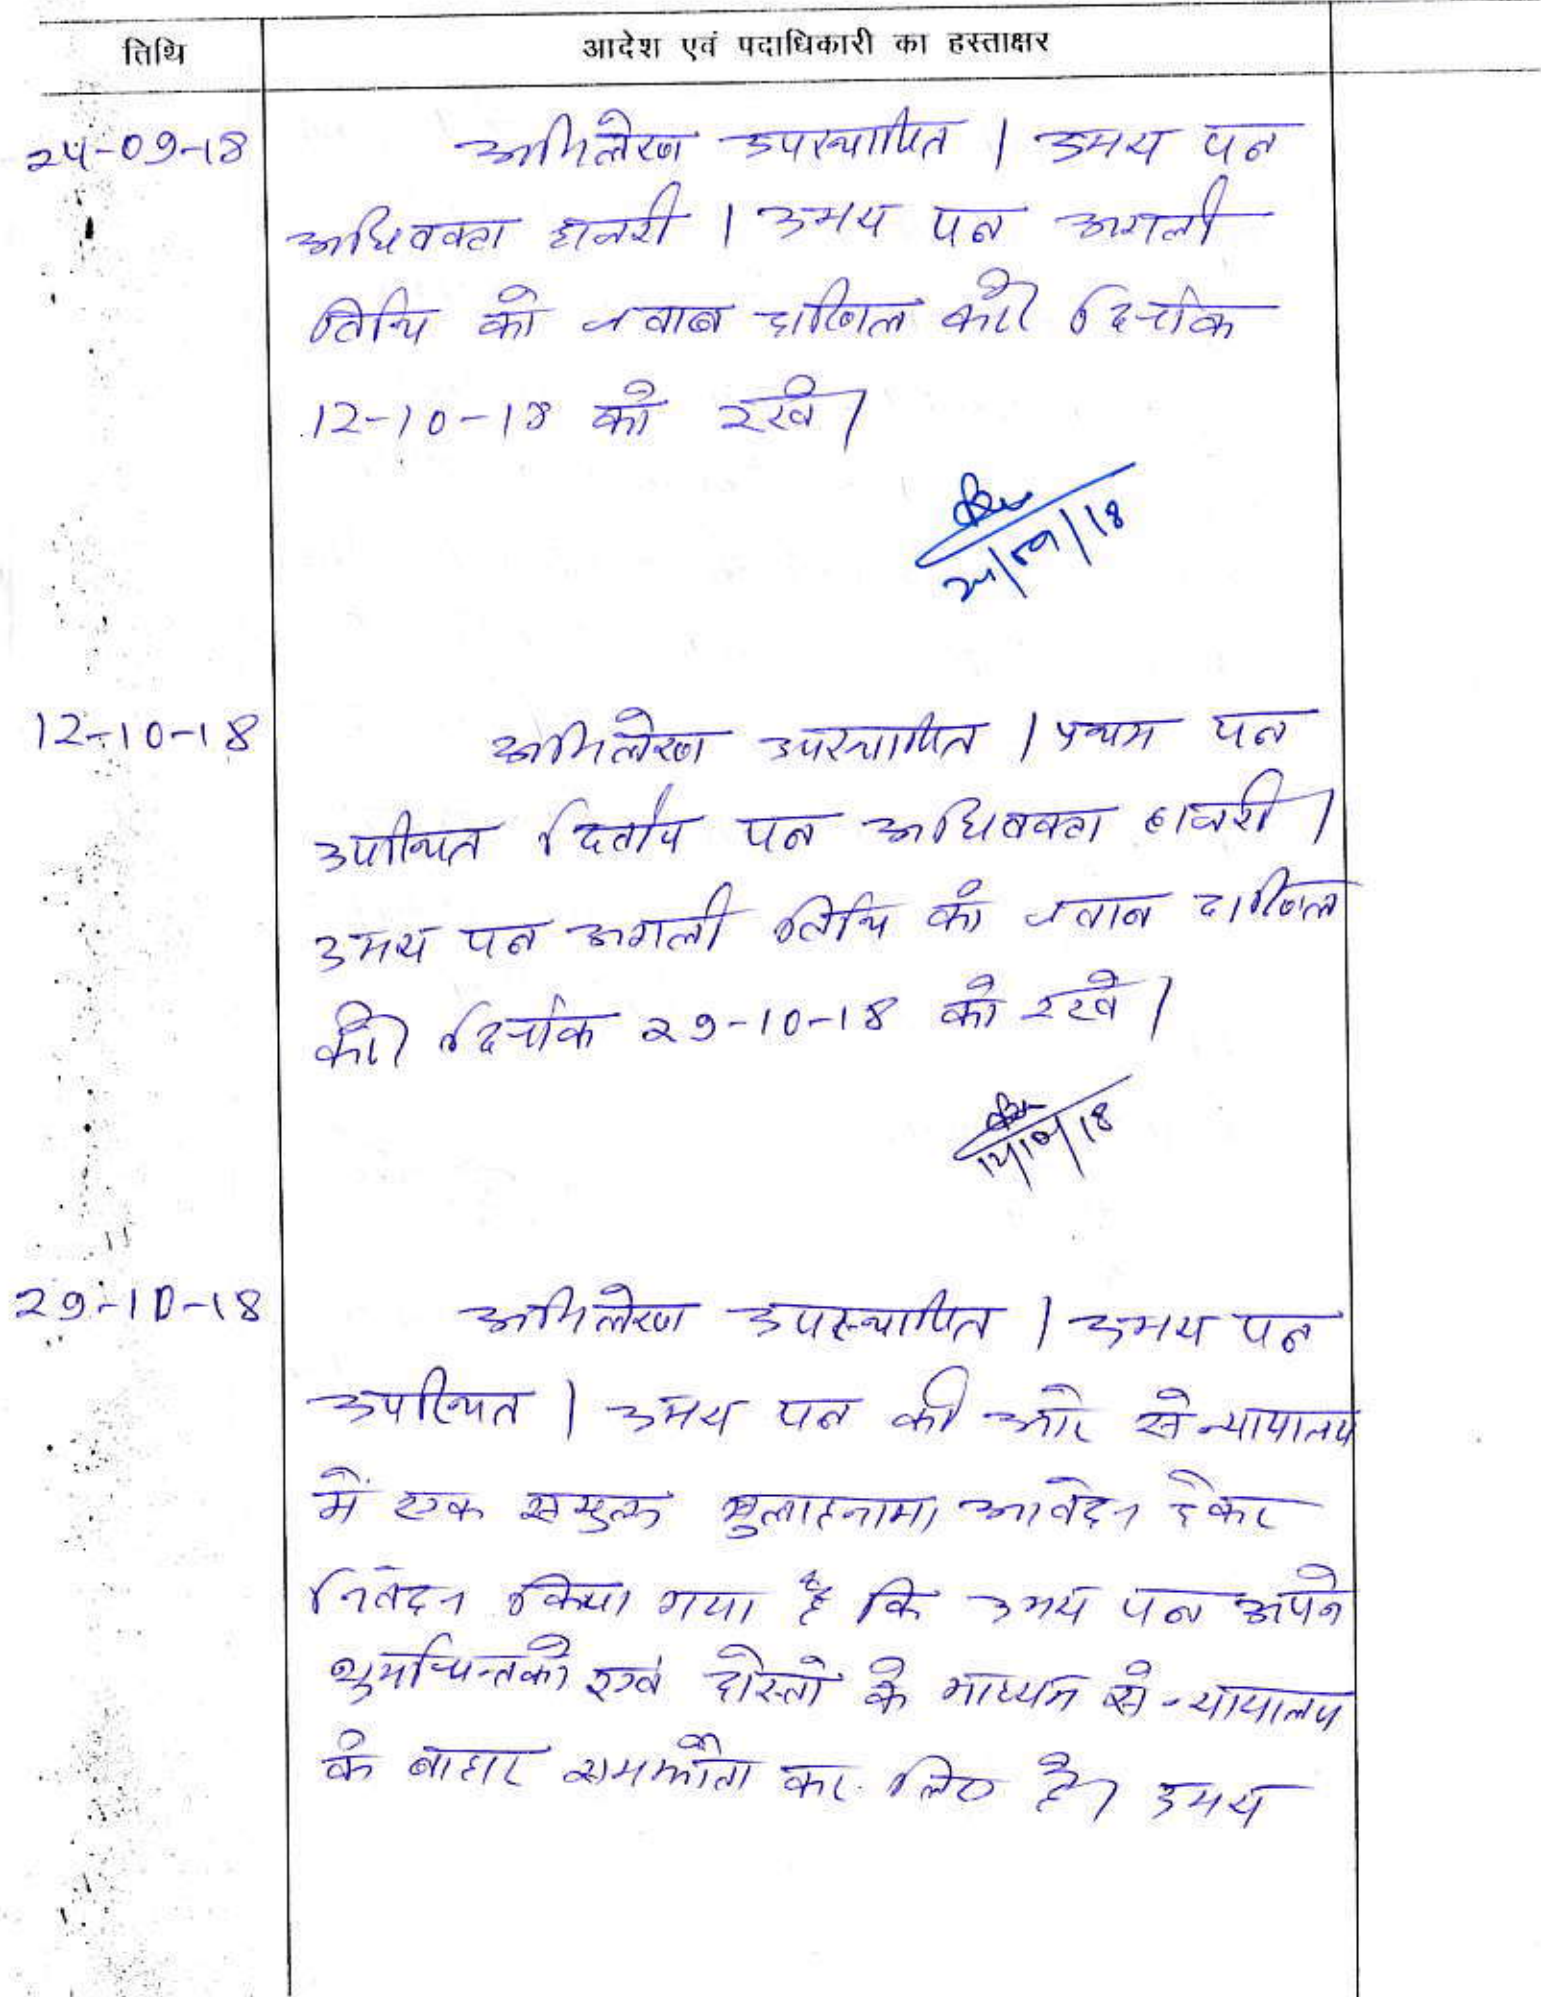 तिथि आदेश एवं पदाधिकारी का हस्ताक्षर
24-09-18 अभिलेख उपस्थापित । उभय पक्ष
अधिवक्ता हाजरी । उभय पक्ष अगली
तिथि को जवाब दाखिल करें। दिनांक
12-10-18 को रखें।
24/09/18
12-10-18 अभिलेख उपस्थापित । प्रथम पक्ष
उपस्थित द्वितीय पक्ष अधिवक्ता हाजरी ।
उभय पक्ष अगली तिथि को जवाब दाखिल
करें। दिनांक 29-10-18 को रखें ।
12/10/18
29-10-18 अभिलेख उपस्थापित । उभय पक्ष
उपस्थित । उभय पक्ष की ओर से न्यायालय
में एक संयुक्त सुलाहनामा आवेदन देकर
निवेदन किया गया है कि उभय पक्ष अपने
शुभचिन्तको एवं दोस्तो के माध्यम से न्यायालय
के बाहार समझौता कर लिए है। उभय